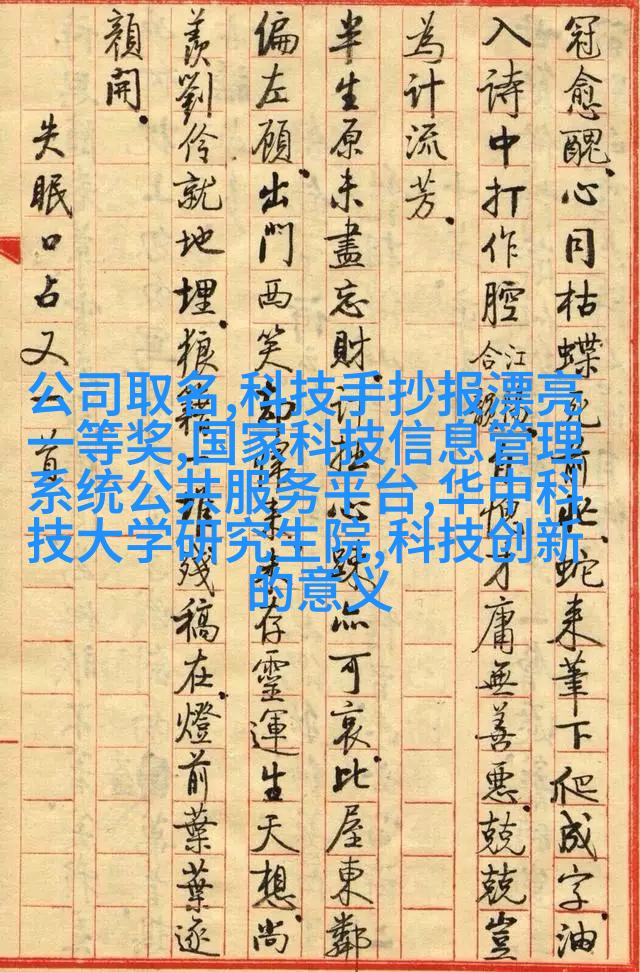 冠愈醜.心同枯蝶 蛇来筆下爬成字.油
入詩中打作腔 愧才庸無善惡.兢兢豈
為計流芳.
半生原未盡忘財.計拙心疎亦可哀.比屋東鄰
偏左顧.出門西笑却歸来.未存靈運生天想.尚
羨劉伶就地埋.狼籍一堆殘稿在.燈前葉葉逐
顏開.
失眠口占又一首
公司取名,科技手抄报漂亮
一等奖,国家科技信息管理
系统公共服务平台,华中科
技大学研究生院,科技创新
的意义